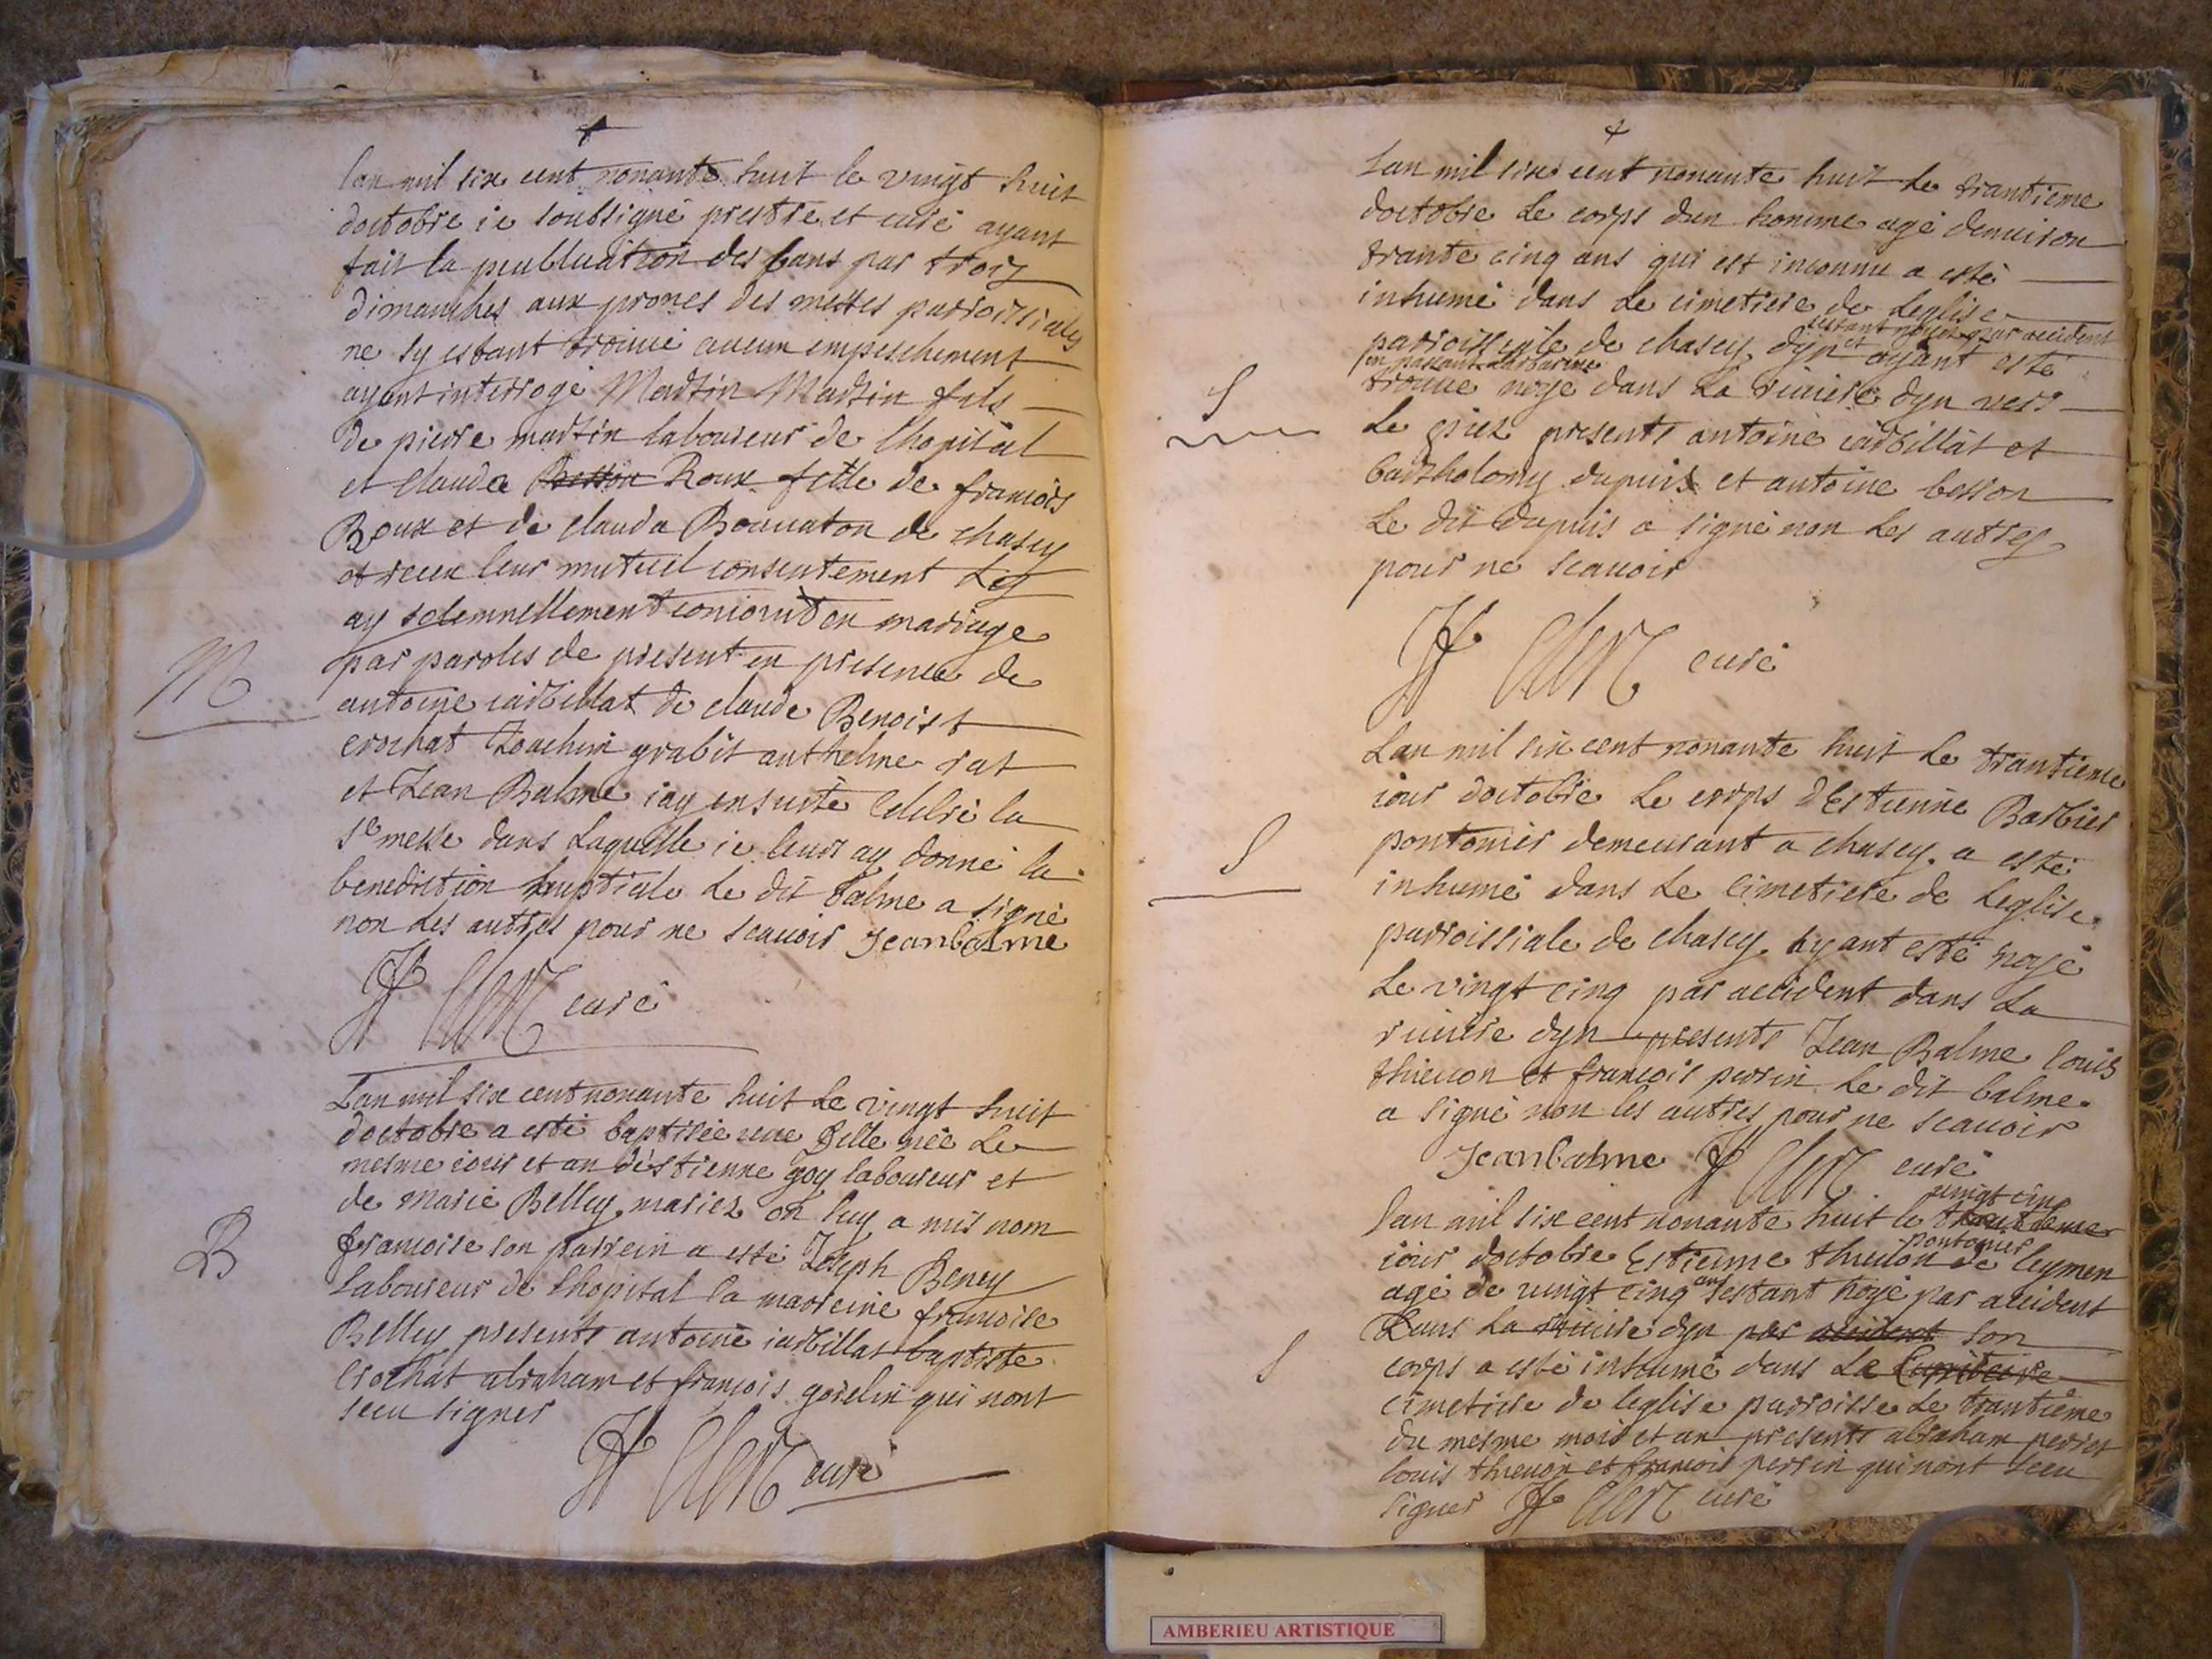 lan mil six cent nonante huit le vingt huit
doctobre ie soubsigné prestre et curé ayant
fait la peubluation des bans par trois
dimanches aux prones des messes parroissiales
ne sy estant trouué aucun empeschement
ayant interrogé Martin Martin fils
de pierre martin laboureur de lhopital
et clauda Roux fille de francois
Roux et de clauda Bouuaton de chasey
et receu leur mutuel consentement Les
ay solemnellement conioint en mariage
par paroles de present en presence de
antoine iarbillat de claude Benoist
crochat Joachim grabit anthelme rat
et Jean Balme iay ensuite Celebré la
Se messe dans Laquelle ie leurs ay donné la
benediction nuptiale Le dit balme a signé
non Les autres pour ne scauoir Jeanbalme
curé
M
Lan mil six cent nonante huit Le vingt huit
doctobre a esté baptisée une fille née Le
mesme iour et an destienne goy laboureur et
de marie Belley mariez on luy a mis nom
francoise son parrein a esté Joseph Beney
Laboureur de lhopital la marreine francoise
Belley presents antoine iarbillat baptiste
crochat abraham et françois goselin qui nont
sceu signer
curé
B
Lan mil six cent nonante huit Le trantieme
doctobre Le corps dun homme agé denuiron
trante cinq ans qui est inconnu a esté
inhumé dans Le cimetiere de Leglise
sestant noyé par accident
parroissiale de chasey dyn et ayant esté
en passant
trouué noyé dans La riuiere dyn vers
Le giez presents antoine iarbillat et
bartholomy dupuis et antoine besson
Le dit dupuis a signé non Les autres
pour ne scauoir
curé
S
Lan mil six cent nonante huit Le trantieme
iour doctobre Le corps dEstienne Barbier
pontonier demeurant a chasey a esté
inhumé dans Le cimetiere de Leglise
parroissiale de chasey ayant esté noyé
Le vingt cinq par accident dans La
riuiere dyn presents Jean Balme Louis
thieuon et francois perrin Le dit balme
a signé non les autres pour ne scauoir
Jeanbalme curé
S
vingt cinq
lan mil six cent nonante huit le trantieme
pontonier
iour doctobre Estienne thieuon de leymen
agé de vingt cinq ans sestant noyé par accident
Dans La riuiere dyn par accident son
corps a esté inhumé dans Le
cimetiere de leglise parroisse Le trantieme
du mesme mois et an presents abraham perrier
louis thieuon et francois perrin qui nont sceu
signer curé
S
AMBERIEU ARTISTIQUE